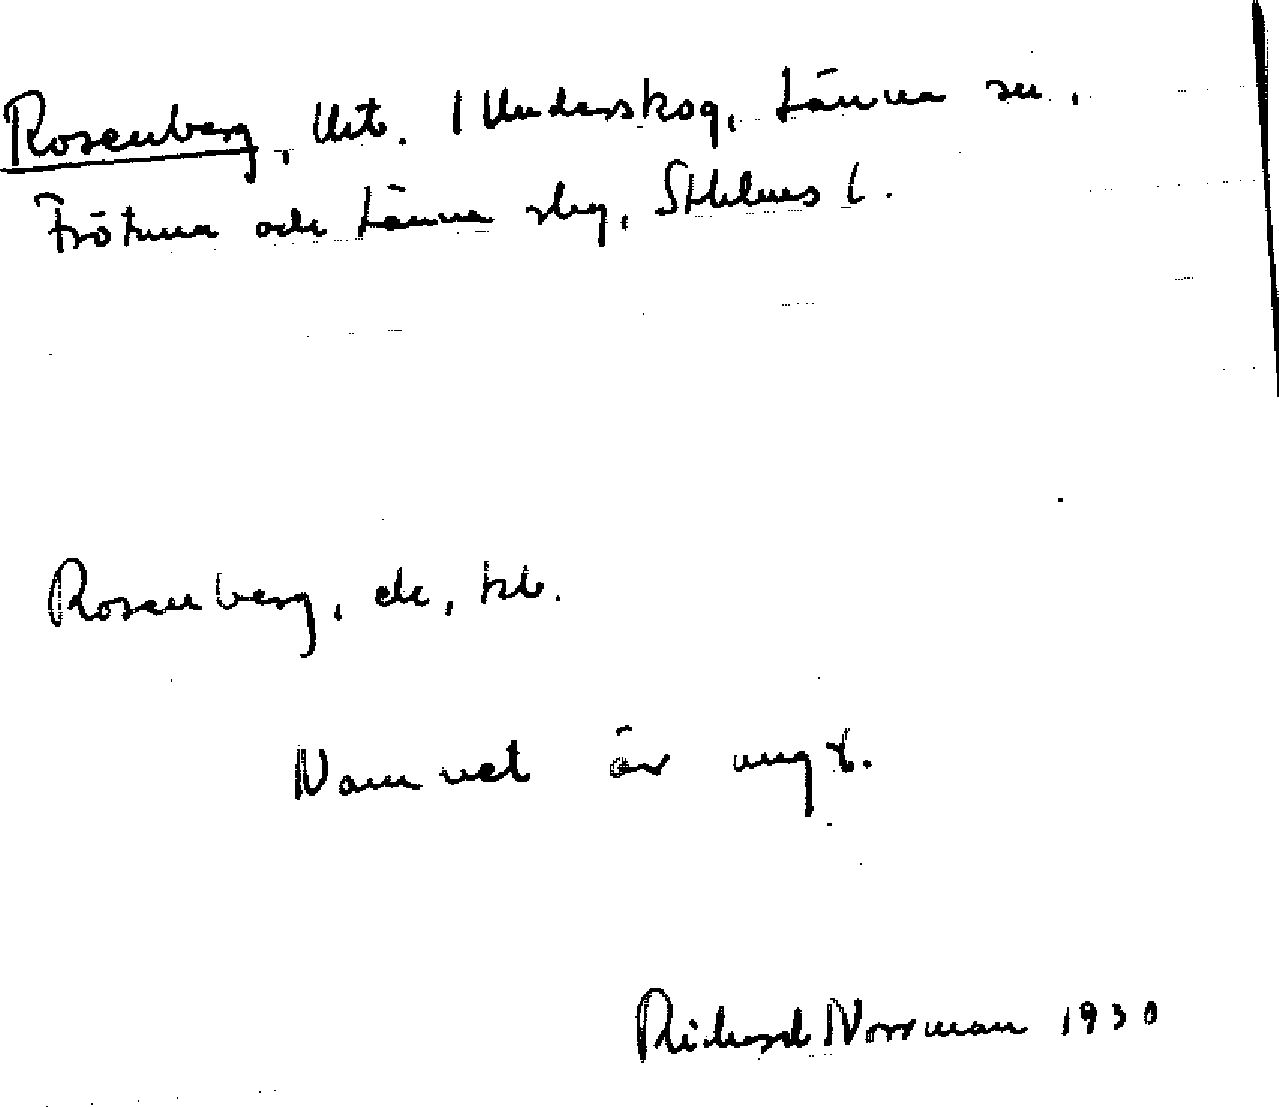 Rosenberg, lht. 1 Underskog, Länna sn,
Frötuna och Länna slg, Sthlms l.
Rosenberg, de, hb.
Namnet är ungt.
Richard Norrman 1930